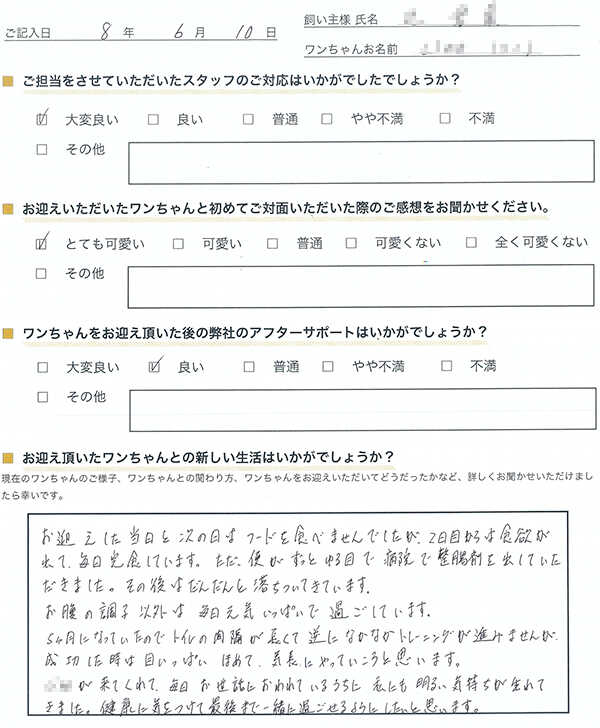 ご記入日 8 年 6 月 10 日
飼い主様 氏名
ワンちゃんお名前
ご担当をさせていただいたスタッフのご対応はいかがでしたでしょうか？
大変良い 良い 普通 やや不満 不満
その他
お迎えいただいたワンちゃんと初めてご対面いただいた際のご感想をお聞かせください。
とても可愛い 可愛い 普通 可愛くない 全く可愛くない
その他
ワンちゃんをお迎え頂いた後の弊社のアフターサポートはいかがでしょうか？
大変良い 良い 普通 やや不満 不満
その他
お迎え頂いたワンちゃんとの新しい生活はいかがでしょうか？
現在のワンちゃんのご様子、ワンちゃんとの関わり方、ワンちゃんをお迎えいただいてどうだったかなど、詳しくお聞かせいただけまし
たら幸いです。
お迎えした当日と次の日はフードを食べませんでしたが、2日目からは食欲が
出て、毎日完食しています。ただ、便がずっとゆる目で病院で整腸剤を出していた
だきました。その後はだんだんと落ちついてきています。
お腹の調子以外は毎日元気いっぱいで過ごしています。
5ヶ月になっていたのでトイレの間隔が長くて逆になかなかトレーニングが進みませんが、
成功した時は目いっぱいほめて、気長にやっていこうと思います。
が来てくれて、毎日お世話におわれているうちに私にも明るい気持ちが生れて
きました。健康に気をつけて最後まで一緒に過ごせるようにしたいと思います。